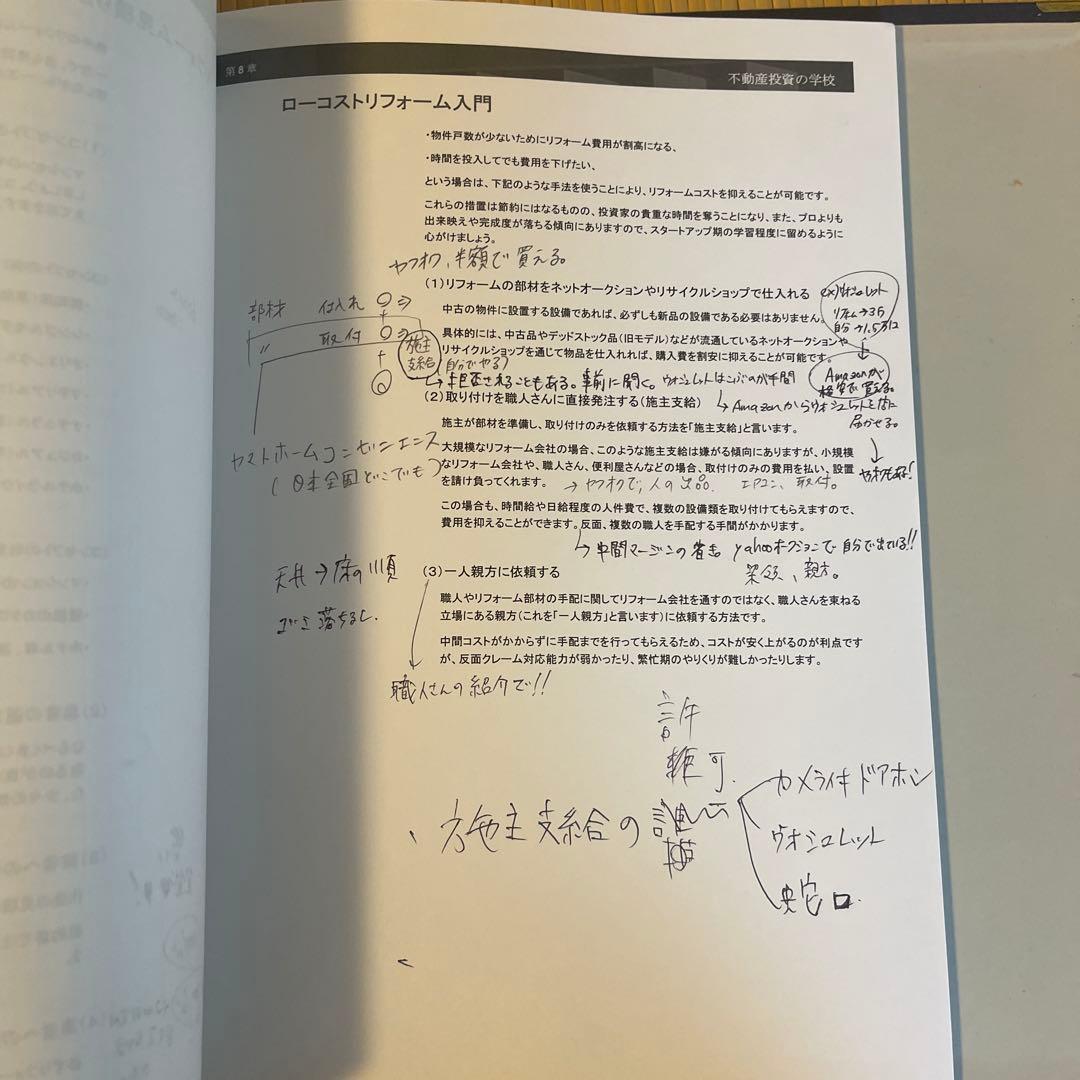 第8章
不動産投資の学校
ローコストリフォーム入門
・物件戸数が少ないためにリフォーム費用が割高になる、
・時間を投入してでも費用を下げたい、
という場合は、下記のような手法を使うことにより、リフォームコストを抑えることが可能です。
これらの措置は節約にはなるものの、投資家の貴重な時間を奪うことになり、また、プロよりも
出来映えや完成度が落ちる傾向にありますので、スタートアップ期の学習程度に留めるように
心がけましょう。
ヤフオク,半額で買える。
(1)リフォームの部材をネットオークションやリサイクルショップで仕入れる
ex)ウォシュレット
リフォム→3.5
自分→1.5万に
部材 仕入れ
中古の物件に設置する設備であれば、必ずしも新品の設備である必要はありません。
〃 取付
施主
支給
具体的には、中古品やデッドストック品(旧モデル)などが流通しているネットオークションや
リサイクルショップを通じて物品を仕入れれば、購入費を割安に抑えることが可能です。
(自分でやる)
Amazonが
格安で買える。
→拒否されることもある。事前に聞く。ウォシュレットはこぶのが手間
(2)取り付けを職人さんに直接発注する(施主支給)
→Amazonからウォシュレットを
届かせる。
施主が部材を準備し、取り付けのみを依頼する方法を「施主支給」と言います。
ヤマトホームコンビニエンス
(日本全国どこでも)
大規模なリフォーム会社の場合、このような施主支給は嫌がる傾向にありますが、小規模
なリフォーム会社や、職人さん、便利屋さんなどの場合、取付けのみの費用を払い、設置
を請け負ってくれます。
→ヤフオクで,人の出品. エアコン、取付。
この場合も、時間給や日給程度の人件費で、複数の設備類を取り付けてもらえますので、
費用を抑えることができます。反面、複数の職人を手配する手間がかかります。
→中間マージンの省き yahooオークションで自分で出ている!!
、親方。
天井→床の順
ゴミ落ちるし.
(3)一人親方に依頼する
職人やリフォーム部材の手配に関してリフォーム会社を通すのではなく、職人さんを束ねる
立場にある親方(これを「一人親方」と言います)に依頼する方法です。
中間コストがかからずに手配までを行ってもらえるため、コストが安く上がるのが利点です
が、反面クレーム対応能力が弱かったり、繁忙期のやりくりが難しかったりします。
職人さんの紹介で!!
許
可.
施主支給の
カメラ付キドアホン
ウォシュレット
蛇口.